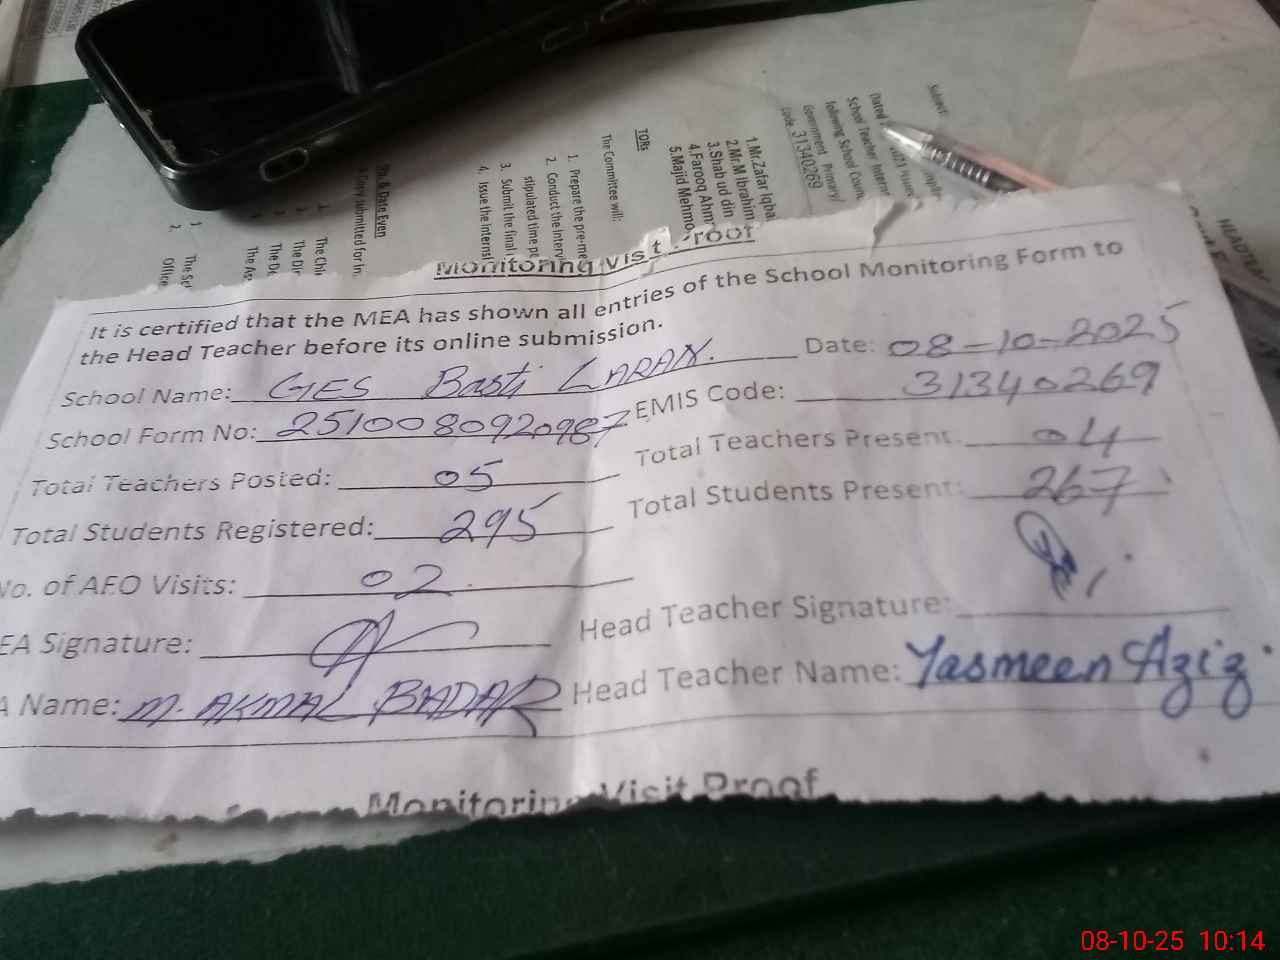 Subject:
Dated
School Teacher Intern
following School Coun
Government Primary
Code 31340269
1.Mr.Zafar Iqba
2.Mr.M Ibrahim
3.Shab ud din
4.Farooq Ahm
5.Majid Mehmo
TORs
The Committee will:
1. Prepare the pre-me
2. Conduct the Interv
stipulated time p
3. Submit the final
4. Issue the internsh
& Date Even
The Chi
The Dir
The D
The Ag
1. The Se
2. Office
HEADTEA
Monitoring Visit Proof
It is certified that the MEA has shown all entries of the School Monitoring Form to
the Head Teacher before its online submission.
School Name: GES Basti LARAN. Date: 08-10-2025
School Form No: 2510080920987 EMIS Code: 31340269
Total Teachers Posted: 05 Total Teachers Present: 04
Total Students Registered: 295 Total Students Present: 267
No. of AEO Visits: 02
EA Signature: Head Teacher Signature:
A Name: M. AKMAL BADAR Head Teacher Name: Yasmeen Aziz
Monitoring Visit Proof
08-10-25 10:14